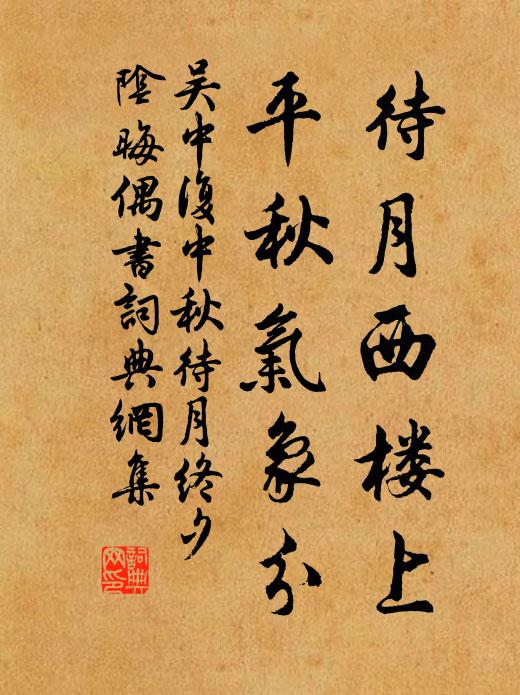 待月西楼上
平秋氣象分
吴中復中秋待月终夕
陰晦偶書詞典網集
詞典
网印